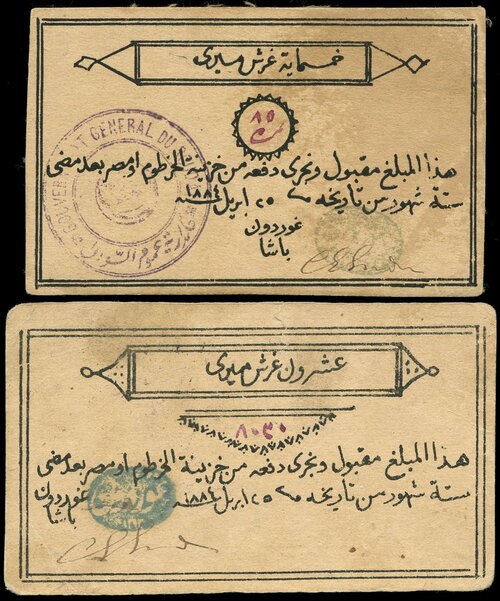 خمسماية غرش ميرى
٨٥
هذا المبلغ مقبول وتجرى دفعه من خزينة الخرطوم او مصر بعد مضى
ستة شهور من تاريخه ٢٥ ابريل ١٨٨٤
غوردون
باشا
GOUVERNEMENT GENERAL DU
عشرون غرش ميرى
٨٠٣٠
هذا المبلغ مقبول وتجرى دفعه من خزينة الخرطوم او مصر بعد مضى
ستة شهور من تاريخه ٢٥ ابريل ١٨٨٤ غوردون
باشا